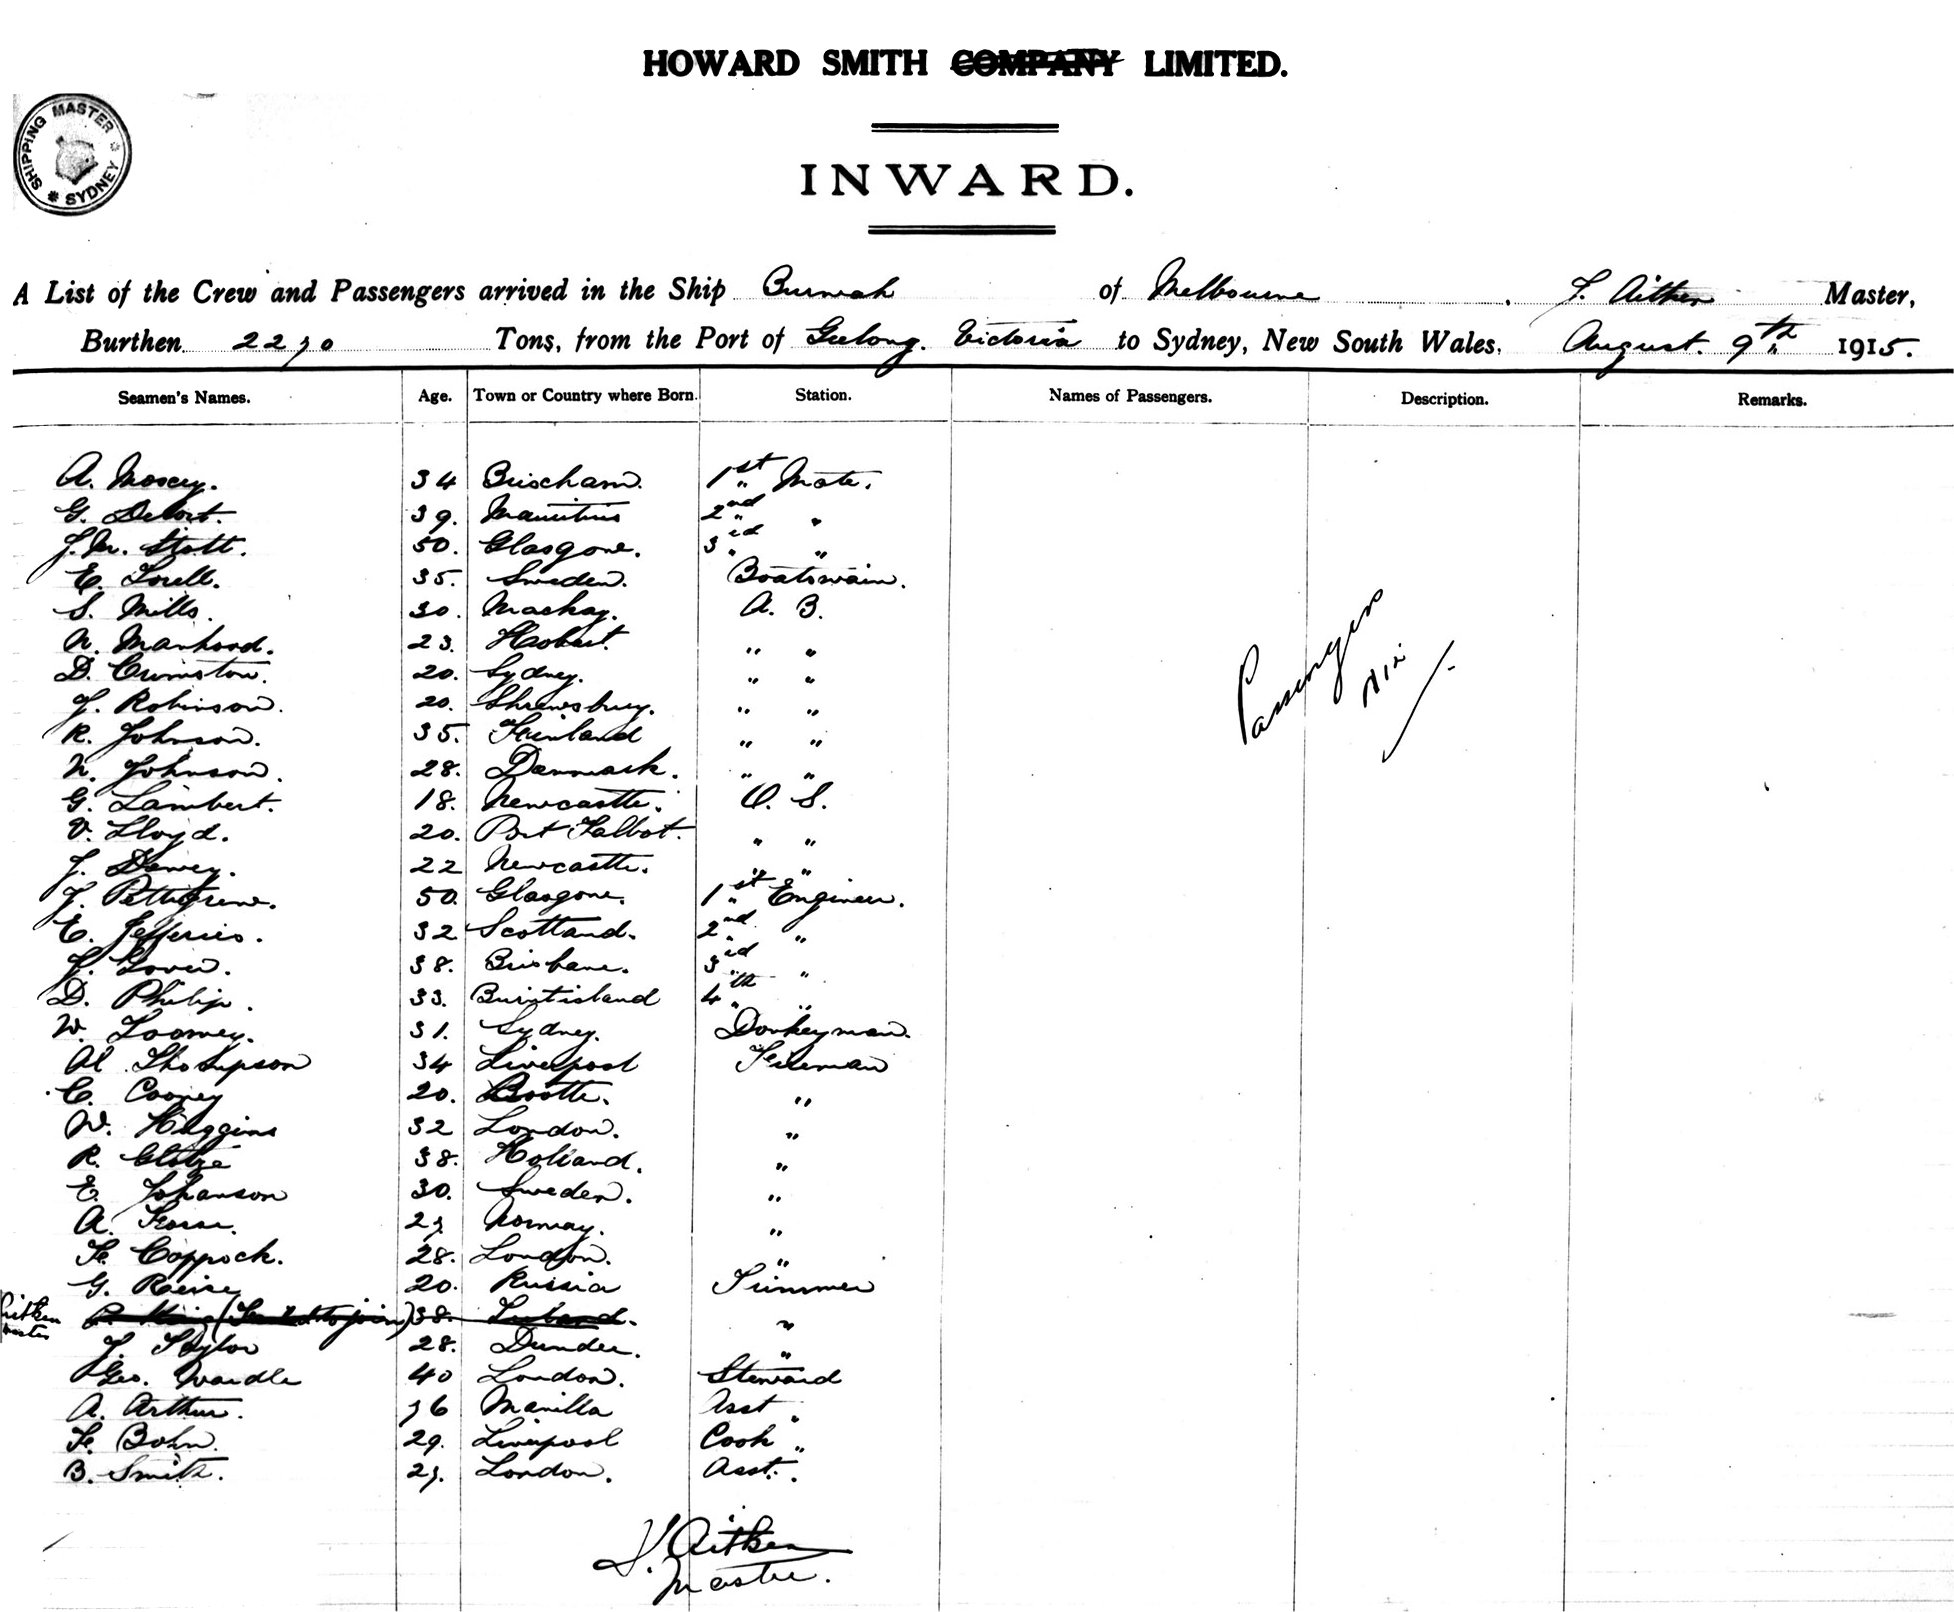 HOWARD SMITH COMPANY LIMITED.
SHIPPING MASTER SYDNEY
INWARD.
A List of the Crew and Passengers arrived in the Ship Burwah of Melbourne, Aitken Master,
Burthen 2270 Tons, from the Port of Geelong. Victoria to Sydney, New South Wales, August. 9th 1915.
Seamen's Names. Age. Town or Country where Born. Station. Names of Passengers. Description. Remarks.
A. Moscey. 34 Brixham. 1st Mate.
G. 39. Mauritius 2nd "
J. M. Stott. 50. Glasgow. 3rd "
E. Lorell. 35. Sweden. Boatswain.
S. Mills. 30. Mackay. A. B.
N. Manhood. 23. Hobart. " "
D. Crimston. 20. Sydney. " "
J. Robinson. 20. Shrewsbury. " "
R. Johnson. 35. Finland " "
N. Johnson. 28. Denmark. " "
G. Lambert. 18. Newcastle. O. S.
V. Lloyd. 20. Port Talbot. " "
J. Dewey. 22 Newcastle. " "
J. Pettigrew. 50. Glasgow. 1st Engineer.
E. Jefferies. 32 Scotland. 2nd "
J. 38. Brisbane. 3rd "
D. Philip. 33. Burntisland 4th "
W. Loomey. 31. Sydney. Donkeyman.
Al Thompson 34 Liverpool Fireman
C. Cooney 20. Bootle. "
W. Huggins 32 London. "
R. 38. Holland. "
E. Johanson 30. Sweden. "
A. 27. Norway. "
F. Coppock. 28. London. "
G. 20. Russia Trimmer
Aitken Master (Failed to join) 38. Ireland. "
J. Taylor 28. Dundee. "
Geo. Wardle 40 London. Steward
A. Arthur. 76 Manilla Asst "
F. Bohn. 29. Liverpool Cook "
B. Smith. 27. London. Asst. "
Passengers
Nil
Aitken
Master.